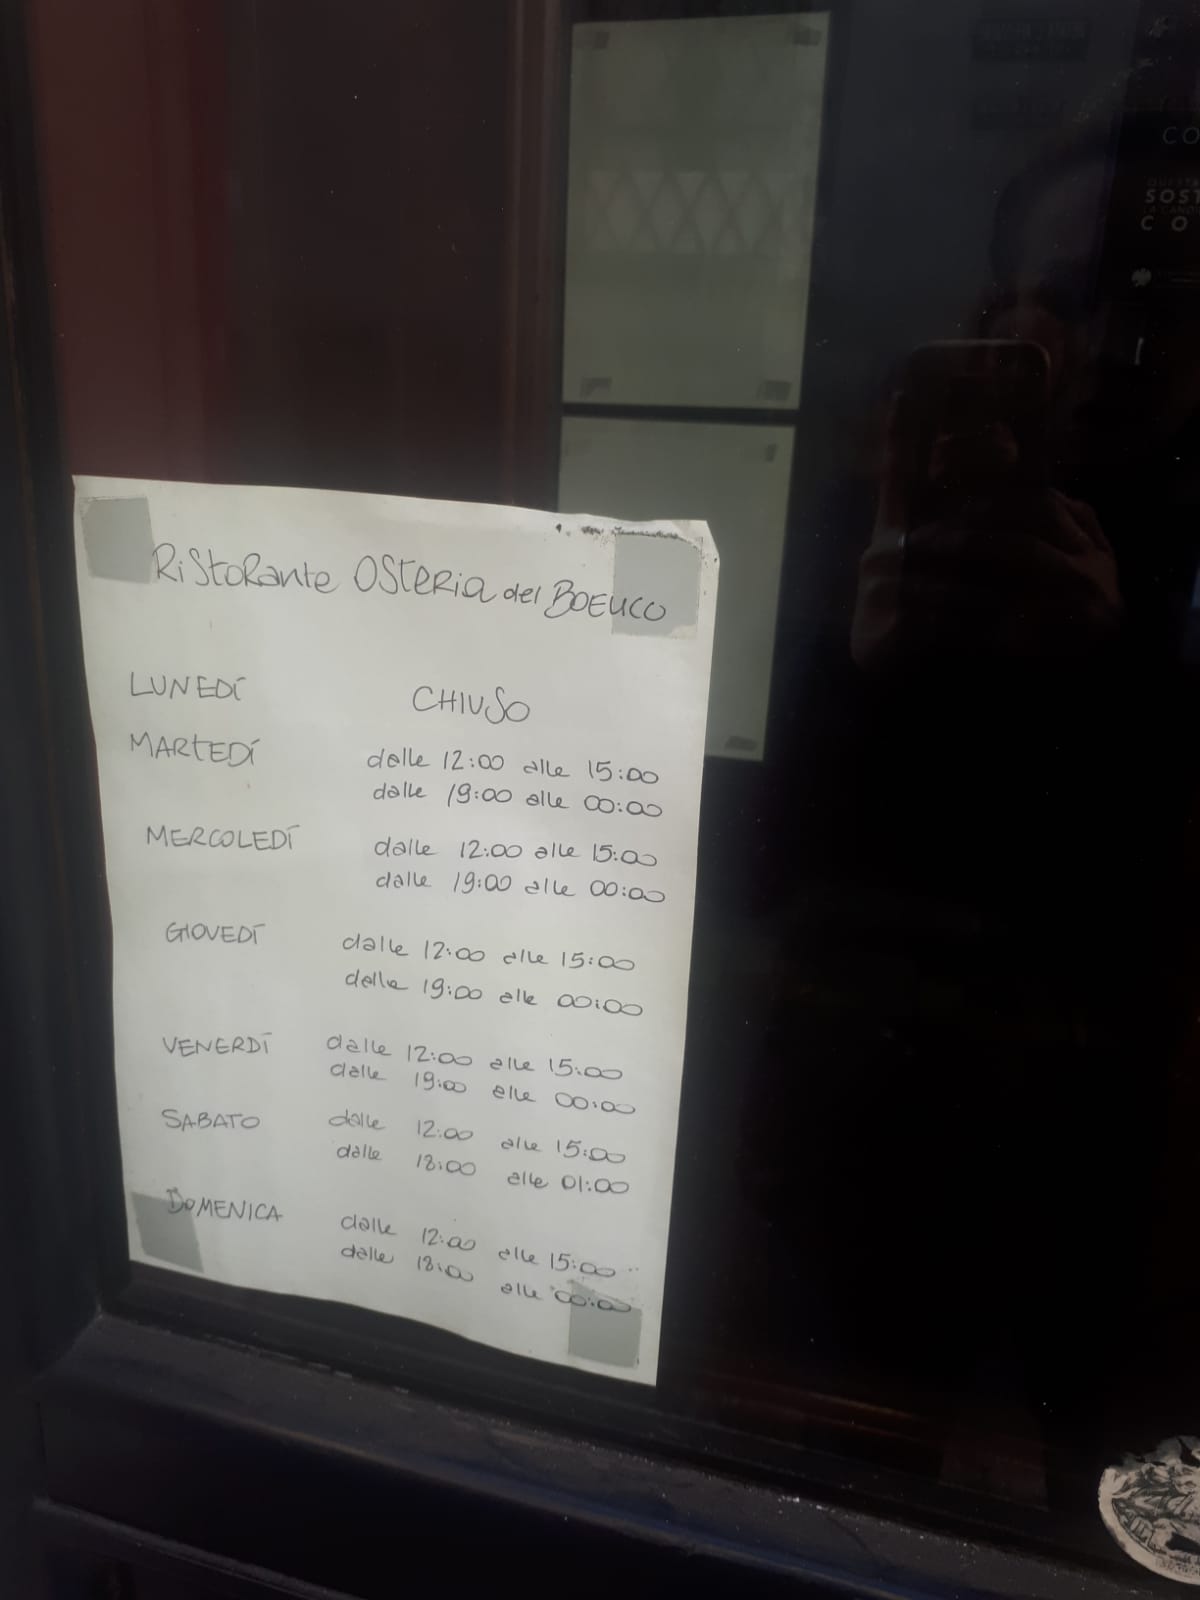 RiStoRante OSteRia del BOEUCO
LUNEDÍ CHIUSO
MARtEDÍ dalle 12:00 alle 15:00
dalle 19:00 alle 00:00
MERCOLEDÍ dalle 12:00 alle 15:00
dalle 19:00 alle 00:00
GIOVEDÍ dalle 12:00 alle 15:00
dalle 19:00 alle 00:00
VENERDÍ dalle 12:00 alle 15:00
dalle 19:00 alle 00:00
SABATO dalle 12:00 alle 15:00
dalle 18:00 alle 01:00
DOMENICA dalle 12:00 alle 15:00
dalle 18:00 alle 00:00
CO
SOST
CO